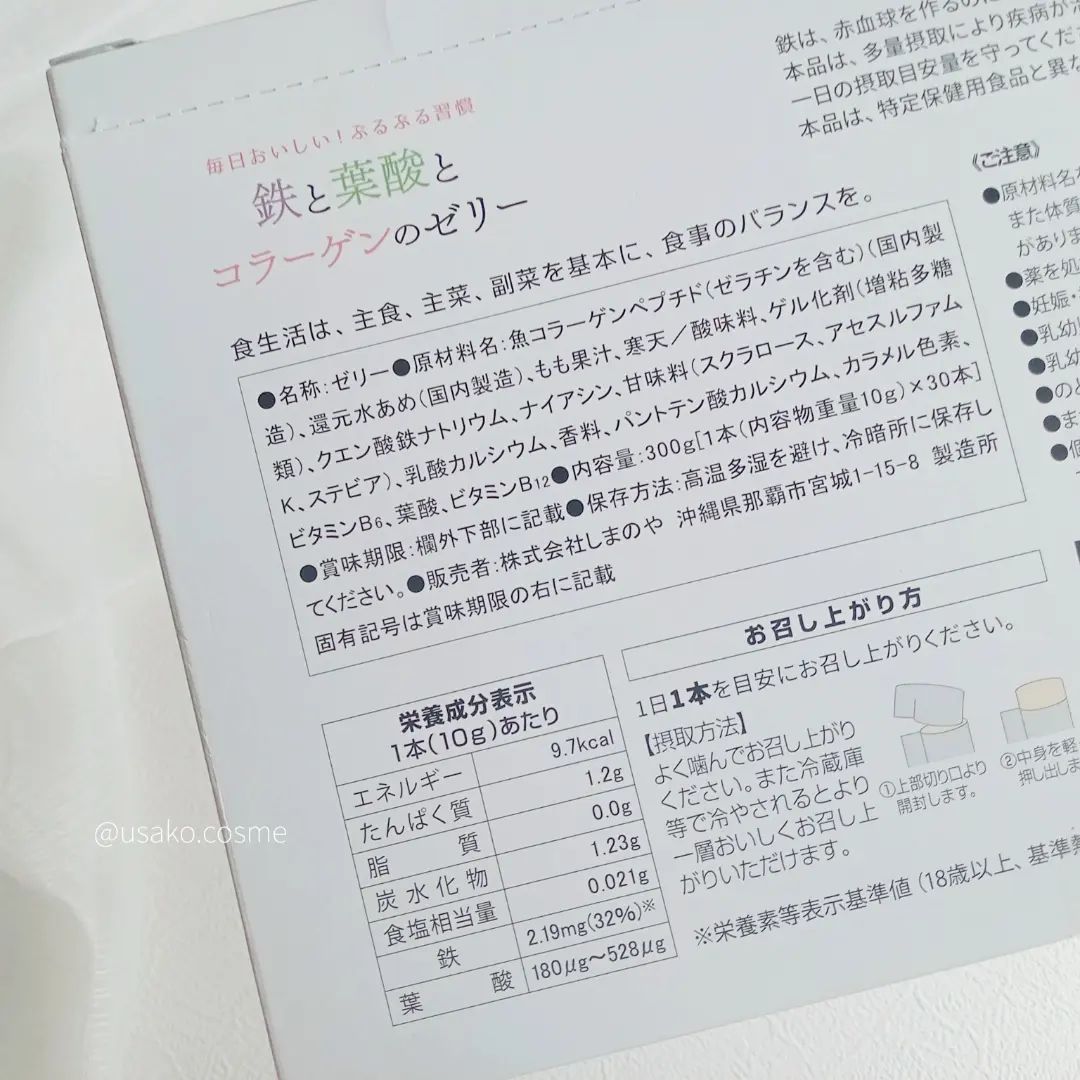 毎日おいしい！ぷるぷる習慣
鉄と葉酸と
コラーゲンのゼリー
食生活は、主食、主菜、副菜を基本に、食事のバランスを。
●名称：ゼリー●原材料名：魚コラーゲンペプチド（ゼラチンを含む）（国内製
造）、還元水あめ（国内製造）、もも果汁、寒天／酸味料、ゲル化剤（増粘多糖
類）、クエン酸鉄ナトリウム、ナイアシン、甘味料（スクラロース、アセスルファム
K、ステビア）、乳酸カルシウム、香料、パントテン酸カルシウム、カラメル色素、
ビタミンB6、葉酸、ビタミンB12●内容量：300g[1本（内容物重量10g）×30本]
●賞味期限：欄外下部に記載●保存方法：高温多湿を避け、冷暗所に保存し
てください。●販売者：株式会社しまのや 沖縄県那覇市宮城1-15-8 製造所
固有記号は賞味期限の右に記載
栄養成分表示
1本（10g）あたり
エネルギー 9.7kcal
たんぱく質 1.2g
脂質 0.0g
炭水化物 1.23g
食塩相当量 0.021g
鉄 2.19mg(32%)※
葉酸 180μg〜528μg
お召し上がり方
1日1本を目安にお召し上がりください。
【摂取方法】
よく噛んでお召し上がり
ください。また冷蔵庫
等で冷やされるとより
一層おいしくお召し上
がりいただけます。
①上部切り口より
開封します。
②中身を軽
押し出しま
※栄養素等表示基準値（18歳以上、基準熱
鉄は、赤血球を作るのに
本品は、多量摂取により疾病が
一日の摂取目安量を守ってくだ
本品は、特定保健用食品と異な
《ご注意》
●原材料名
また体質
があり
●薬を処
●妊娠・
●乳幼
●乳幼
●のど
●ま
●個
@usako.cosme